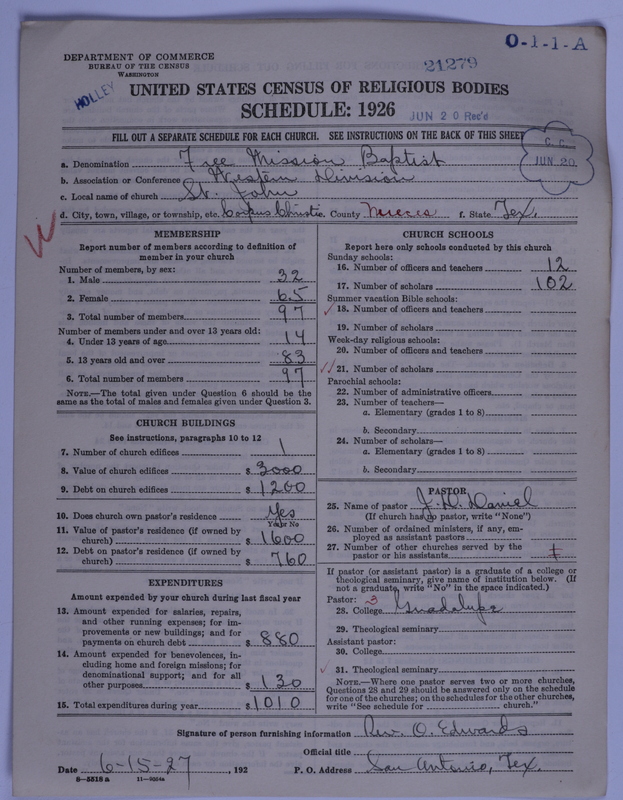 O-1-1-A
DEPARTMENT OF COMMERCE
BUREAU OF THE CENSUS
WASHINGTON
21279
HOLLEY
UNITED STATES CENSUS OF RELIGIOUS BODIES
SCHEDULE: 1926
JUN 20 Rec'd
FILL OUT A SEPARATE SCHEDULE FOR EACH CHURCH. SEE INSTRUCTIONS ON THE BACK OF THIS SHEET
C. C.
JUN 20
a. Denomination Free Mission Baptist
b. Association or Conference Western Division
c. Local name of church St. John
d. City, town, village, or township, etc. Corpus Christie. County Nueces f. State Tex.
MEMBERSHIP
Report number of members according to definition of
member in your church
Number of members, by sex:
1. Male 32
2. Female 65
3. Total number of members 97
Number of members under and over 13 years old:
4. Under 13 years of age 14
5. 13 years old and over 83
6. Total number of members 97
NOTE.—The total given under Question 6 should be the
same as the total of males and females given under Question 3.
CHURCH BUILDINGS
See instructions, paragraphs 10 to 12
7. Number of church edifices 1
8. Value of church edifices $ 3000
9. Debt on church edifices $ 1200
10. Does church own pastor's residence Yes
Yes or No
11. Value of pastor's residence (if owned by
church) $ 1600
12. Debt on pastor's residence (if owned by
church) $ 760
EXPENDITURES
Amount expended by your church during last fiscal year
13. Amount expended for salaries, repairs,
and other running expenses; for im-
provements or new buildings; and for
payments on church debt $ 880
14. Amount expended for benevolences, in-
cluding home and foreign missions; for
denominational support; and for all
other purposes $ 130
15. Total expenditures during year $ 1010
CHURCH SCHOOLS
Report here only schools conducted by this church
Sunday schools:
16. Number of officers and teachers 12
17. Number of scholars 102
Summer vacation Bible schools:
18. Number of officers and teachers
19. Number of scholars
Week-day religious schools:
20. Number of officers and teachers
21. Number of scholars
Parochial schools:
22. Number of administrative officers
23. Number of teachers—
a. Elementary (grades 1 to 8)
b. Secondary
24. Number of scholars—
a. Elementary (grades 1 to 8)
b. Secondary
PASTOR
25. Name of pastor J. D. Daniel
(If church has no pastor, write "None")
26. Number of ordained ministers, if any, em-
ployed as assistant pastors
27. Number of other churches served by the
pastor or his assistants
If pastor (or assistant pastor) is a graduate of a college or
theological seminary, give name of institution below. (If
not a graduate, write "No" in the space indicated.)
Pastor: 3
28. College Guadalupe
29. Theological seminary
Assistant pastor:
30. College
31. Theological seminary
NOTE.—Where one pastor serves two or more churches,
Questions 28 and 29 should be answered only on the schedule
for one of the churches; on the schedules for the other churches,
write "See schedule for church."
Signature of person furnishing information Rev. O. Edwards
Official title
Date 6-15-27, 192 P. O. Address San Antonio, Tex.
8-5518 a 11-9064a